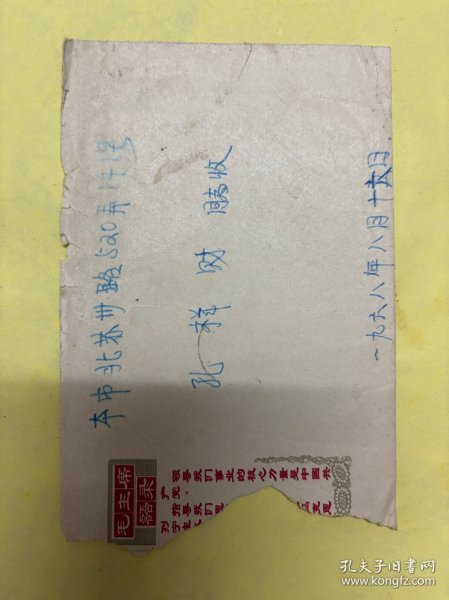 本市北苏州路520弄
孔祥财 收
一九六八年八月十六日
毛主席
語录
领导我们事业的核心力量是中国共
产党。
指导我们
克思
列宁主
孔夫子旧书网
www.kongfz.com